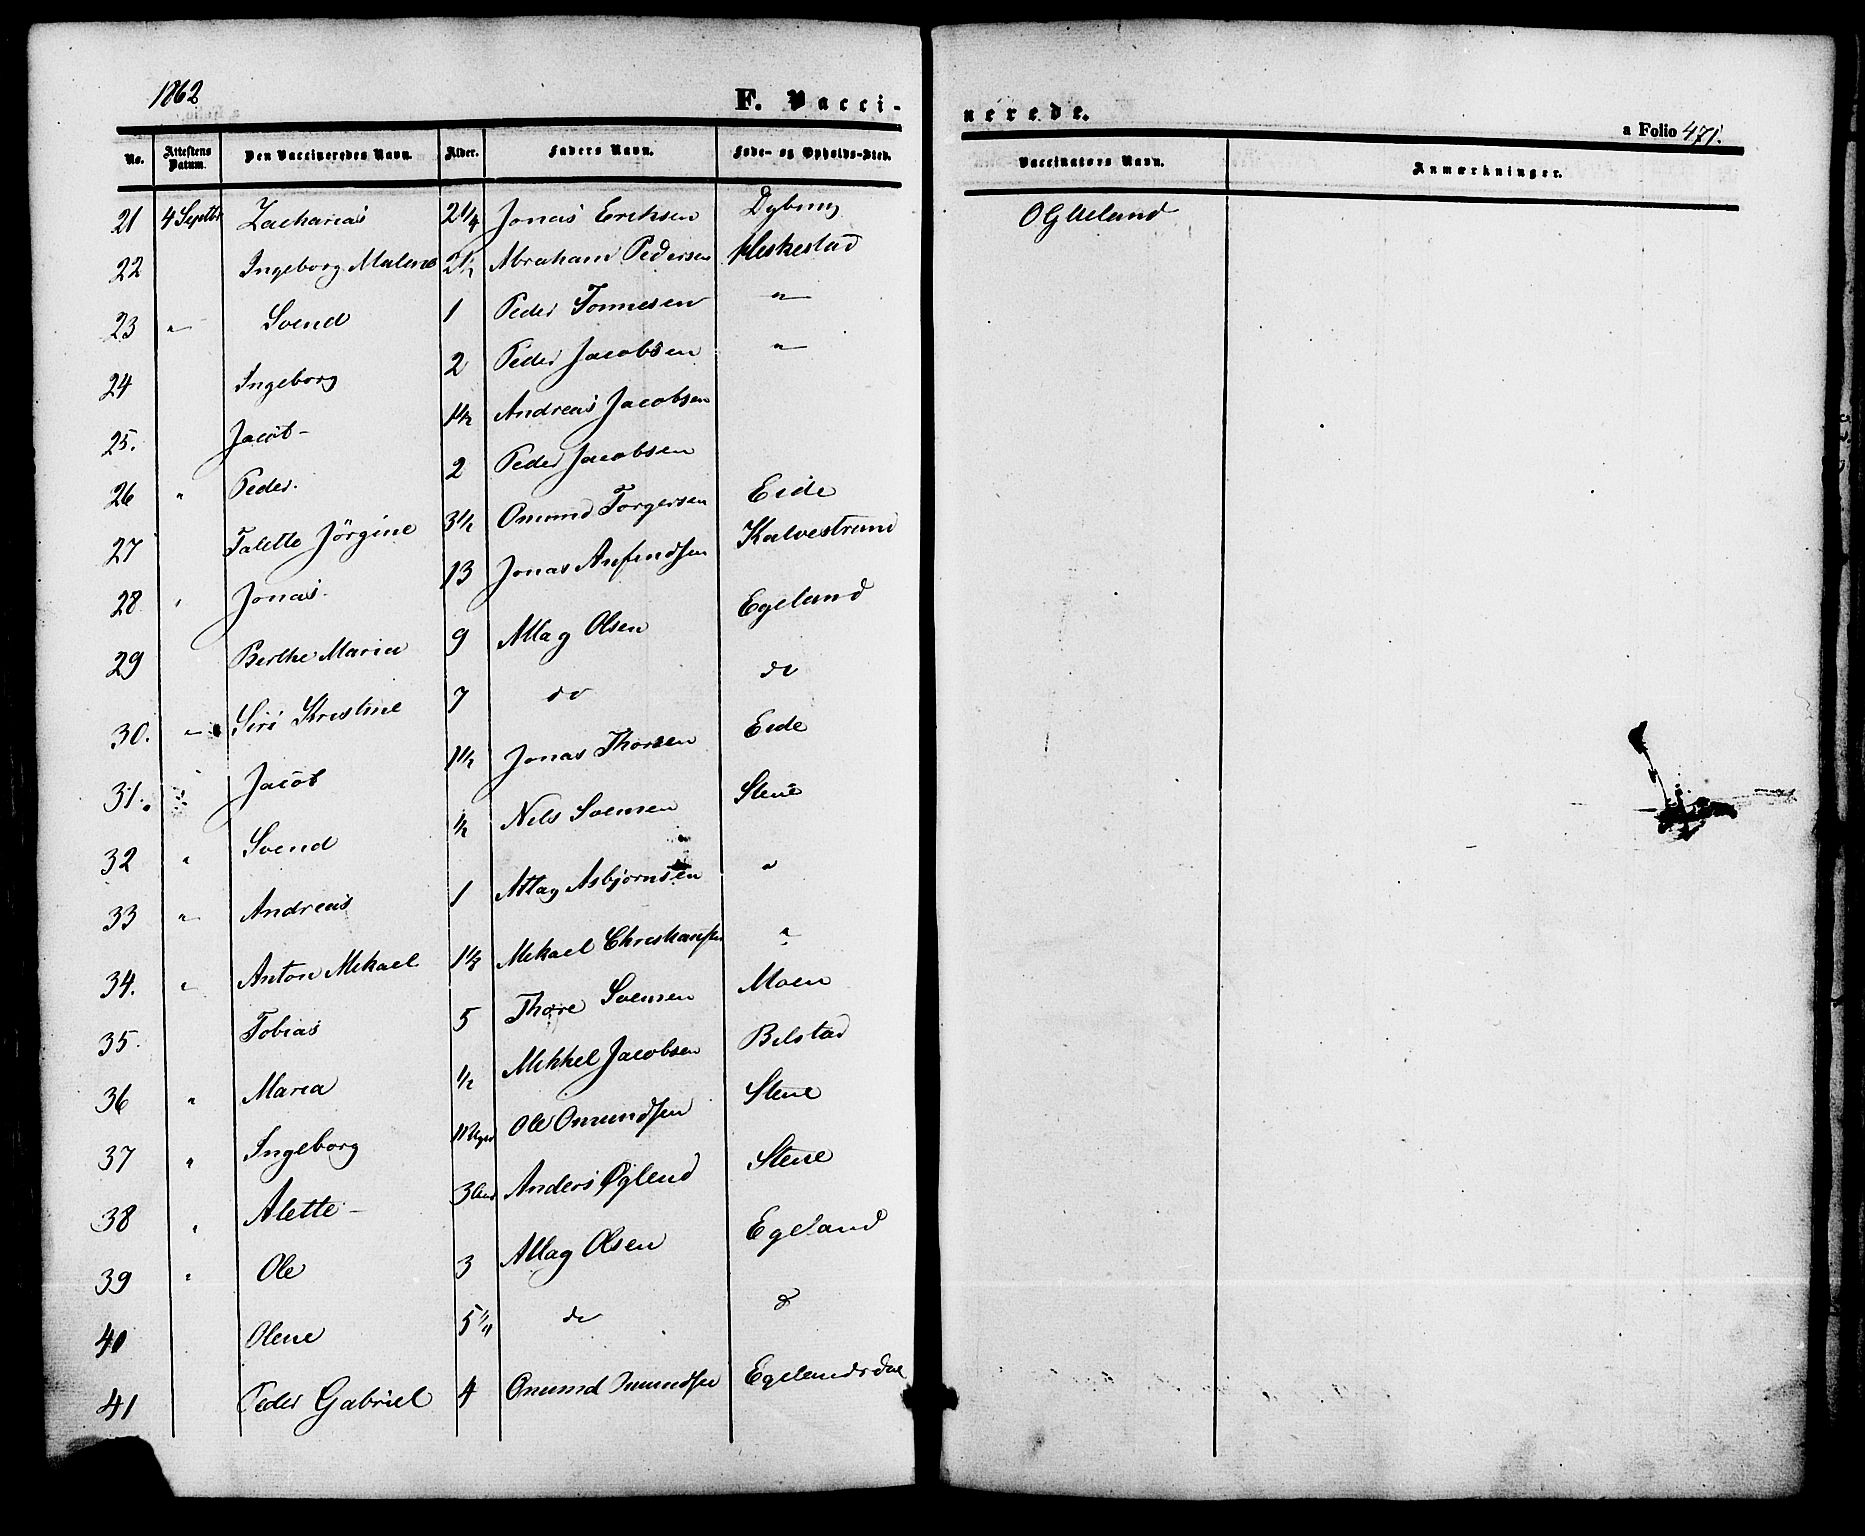 1862
F. Vacci-
nerede.
a Folio 471.
No. Attestens Datum. Den Vaccineredes Navn. Alder. Faders Navn. Føde- og Opholds-Sted. Vaccinators Navn. Anmærkninger.
21 4 Septbr Zacharias 2 1/4 Jonas Eriksen Dybing OGUeland
22 Ingeborg Malene 2 1/2 Abraham Pedersen Heskestad
23 " Svend 1 Peder Tonnesen "
24 Ingeborg 2 Peder Jacobsen "
25. Jacob- 1 1/2 Andreas Jacobsen
26 " Peder. 2 Peder Jacobsen
27 Talette Jörgine 3 1/2 Omund Torgersen Eide
28 " Jonas. 13 Jonas Anfindsen Kalvestrand
29 Berthe Maria 9 Atlag Olsen Egeland
30. " Siri Kristine 7 do do
31. " Jacob 1 1/2 Jonas Thorsen Eide
32 " Svend 1/2 Nils Svensen Stene
33 " Andreas 1 Atlag Asbjornsen "
34. " Anton Mikael 1 1/3 Mikael Christiansen "
35. Tobias 5 Thore Svensen Moen
36 " Maria 1/2 Mikkel Jacobsen Bilstad
37 " Ingeborg 11 Uger Ole Omundsen Stene
38 " Alette- 3 Anders Øglend Stene
39 " Ole 3 Atlag Olsen Egeland
40 Olene 5 1/4 do do
41 Peder Gabriel 4 Omund Omundsen Egelandsdal